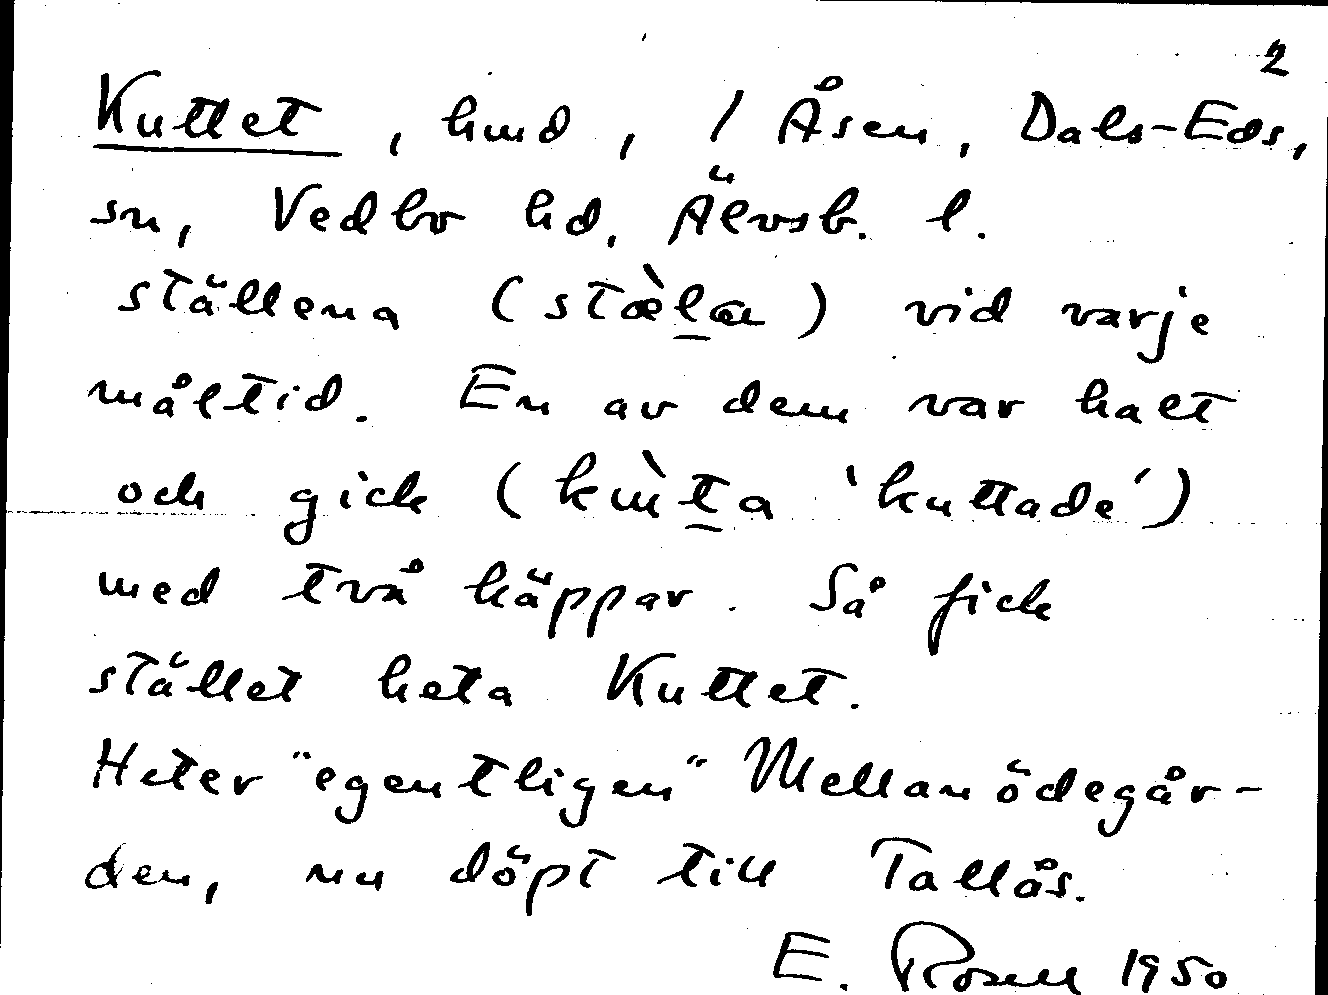 2
Kuttet, hmd, 1 Åsen, Dals-Eds,
sn, Vedbo hd, Älvsb. l.
ställena (stæ̀l̠a) vid varje
måltid. En av dem var halt
och gick (kùt̠a 'kuttade')
med två käppar. Så fick
stället heta Kuttet.
Heter "egentligen" Mellanödegår-
den, nu döpt till Tallås.
E. Rosell 1950